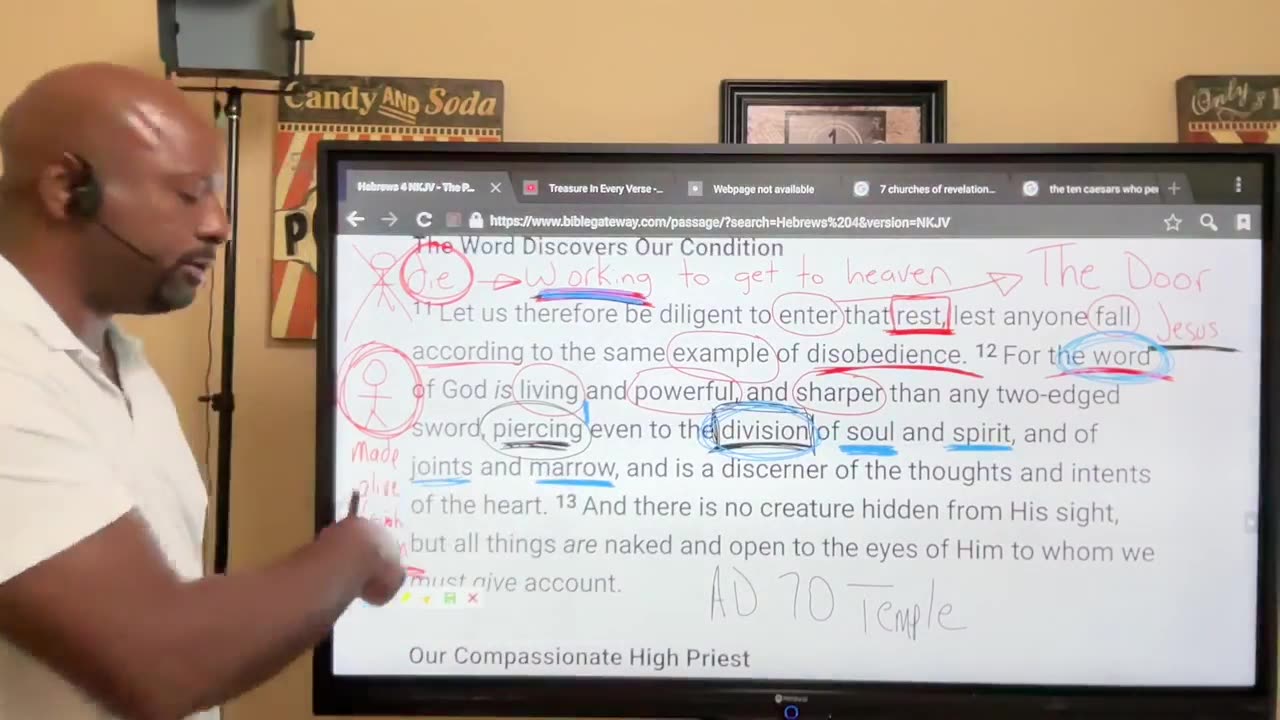 Candy AND Soda
Only
1
Hebrews 4 NKJV - The P...
Treasure In Every Verse -...
Webpage not available
7 churches of revelation...
the ten caesars who per
https://www.biblegateway.com/passage/?search=Hebrews%204&version=NKJV
The Word Discovers Our Condition
die Working to get to heaven The Door
11 Let us therefore be diligent to enter that rest, lest anyone fall
Jesus
according to the same example of disobedience. 12 For the word
of God is living and powerful, and sharper than any two-edged
sword, piercing even to the division of soul and spirit, and of
Made
joints and marrow, and is a discerner of the thoughts and intents
alive
of the heart. 13 And there is no creature hidden from His sight,
but all things are naked and open to the eyes of Him to whom we
must give account.
AD 70 Temple
Our Compassionate High Priest